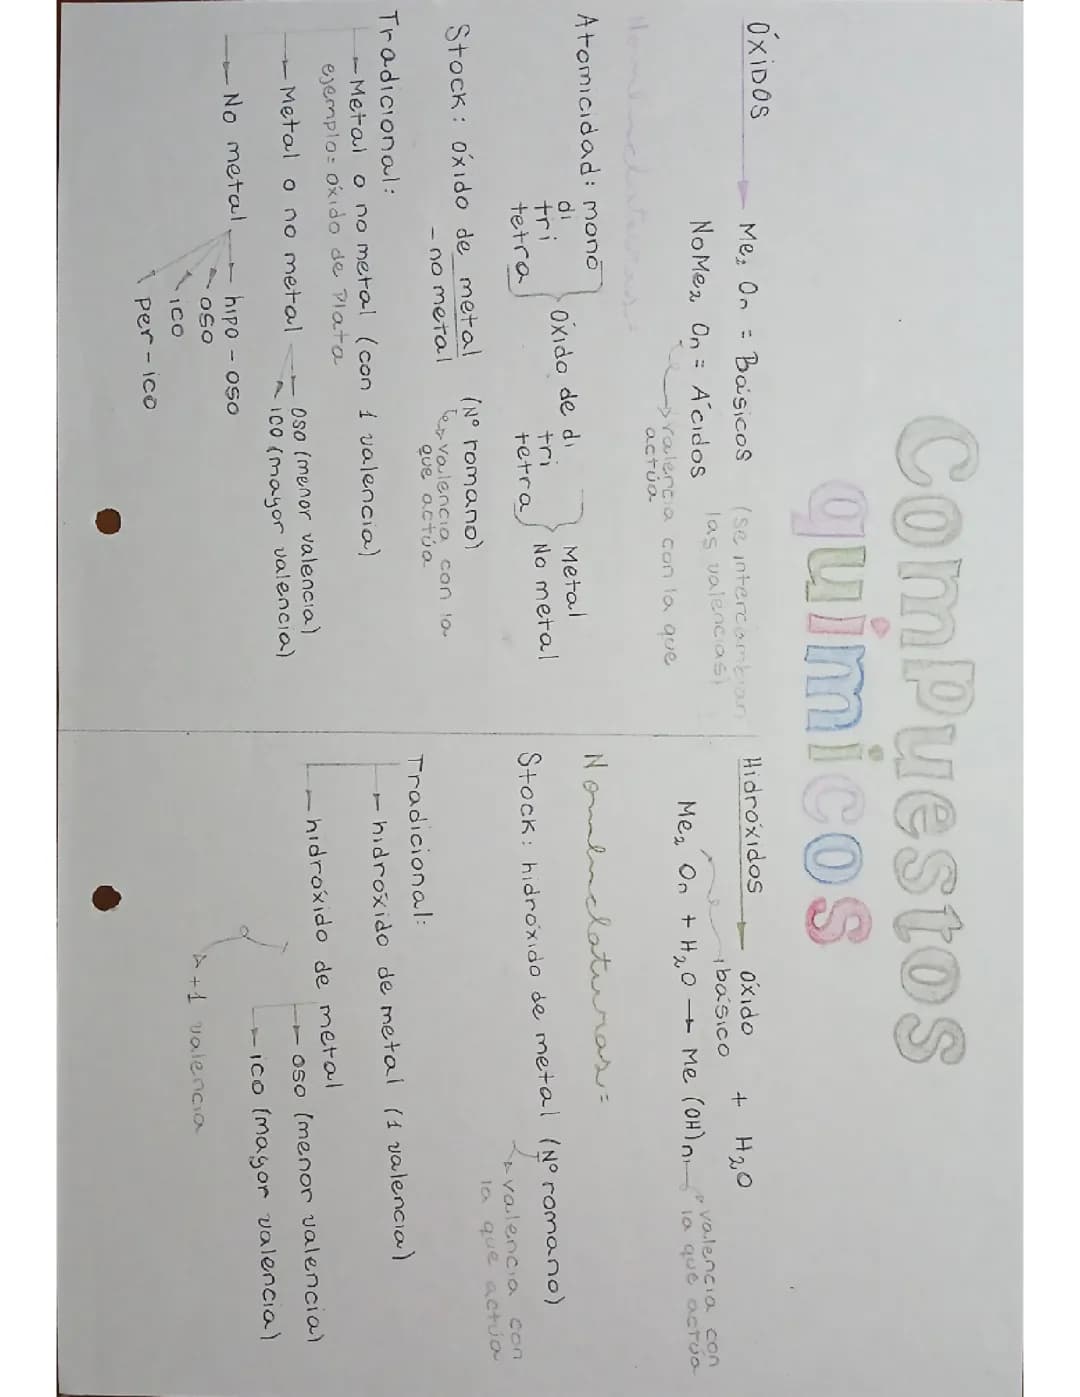 Compuestos
quimicos
ÓXIDOS → Me₂ On = Básicos (se intercambian
NoMe₂ On = Ácidos las valencias)
→ valencia con la que
actúa
Nomenclaturas =
Atomicidad: mono
di
tri
tetra
Óxido de di
tri
tetra
Metal
No metal
Stock: óxido de metal (Nº romano)
- no metal
↳ valencia con la
que actúa
Tradicional:
→ Metal o no metal (con 1 valencia)
ejemplo= óxido de Plata
→ Metal o no metal → oso (menor valencia)
→ ico (mayor valencia)
→ No metal → hipo - oso
oso
ico
per - ico
Hidróxidos → óxido + H₂O
básico
Me₂ On + H₂O → Me (OH)n → valencia con
la que actúa
Nomenclaturas =
Stock: hidróxido de metal (Nº romano)
↳ valencia con
la que actúa
Tradicional:
→ hidróxido de metal (1 valencia)
→ hidróxido de metal
→ oso (menor valencia)
→ ico (mayor valencia)
→ +1 valencia